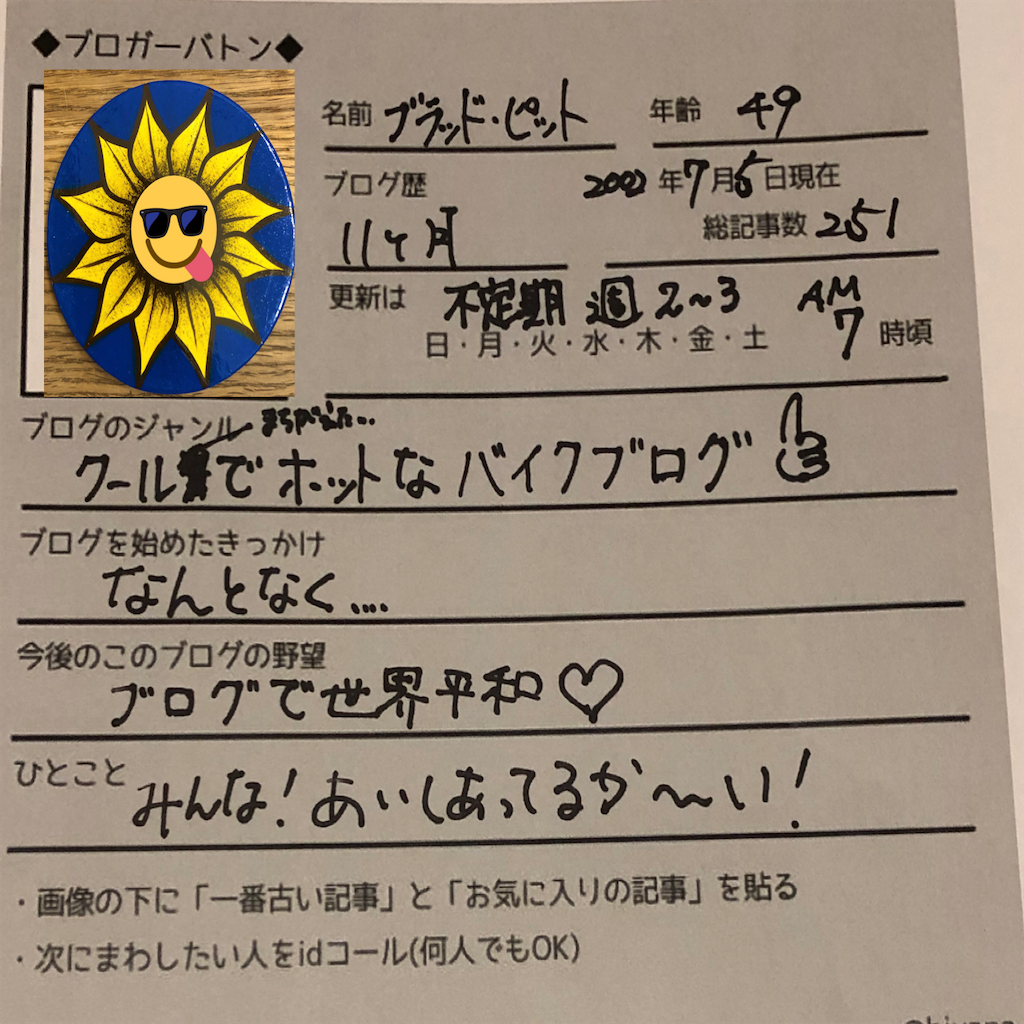 ◆ブロガーバトン◆
名前 ブラッド・ピット 年齢 49
ブログ歴 年7月5日現在
11ヶ月 総記事数 251
更新は 不定期 週2~3 AM
日・月・火・水・木・金・土 7時頃
ブログのジャンル まちがえた...
クールでホットなバイクブログ
ブログを始めたきっかけ
なんとなく....
今後のこのブログの野望
ブログで世界平和♡
ひとこと みんな!あいしあってるか〜い!
・画像の下に「一番古い記事」と「お気に入りの記事」を貼る
・次にまわしたい人をidコール(何人でもOK)